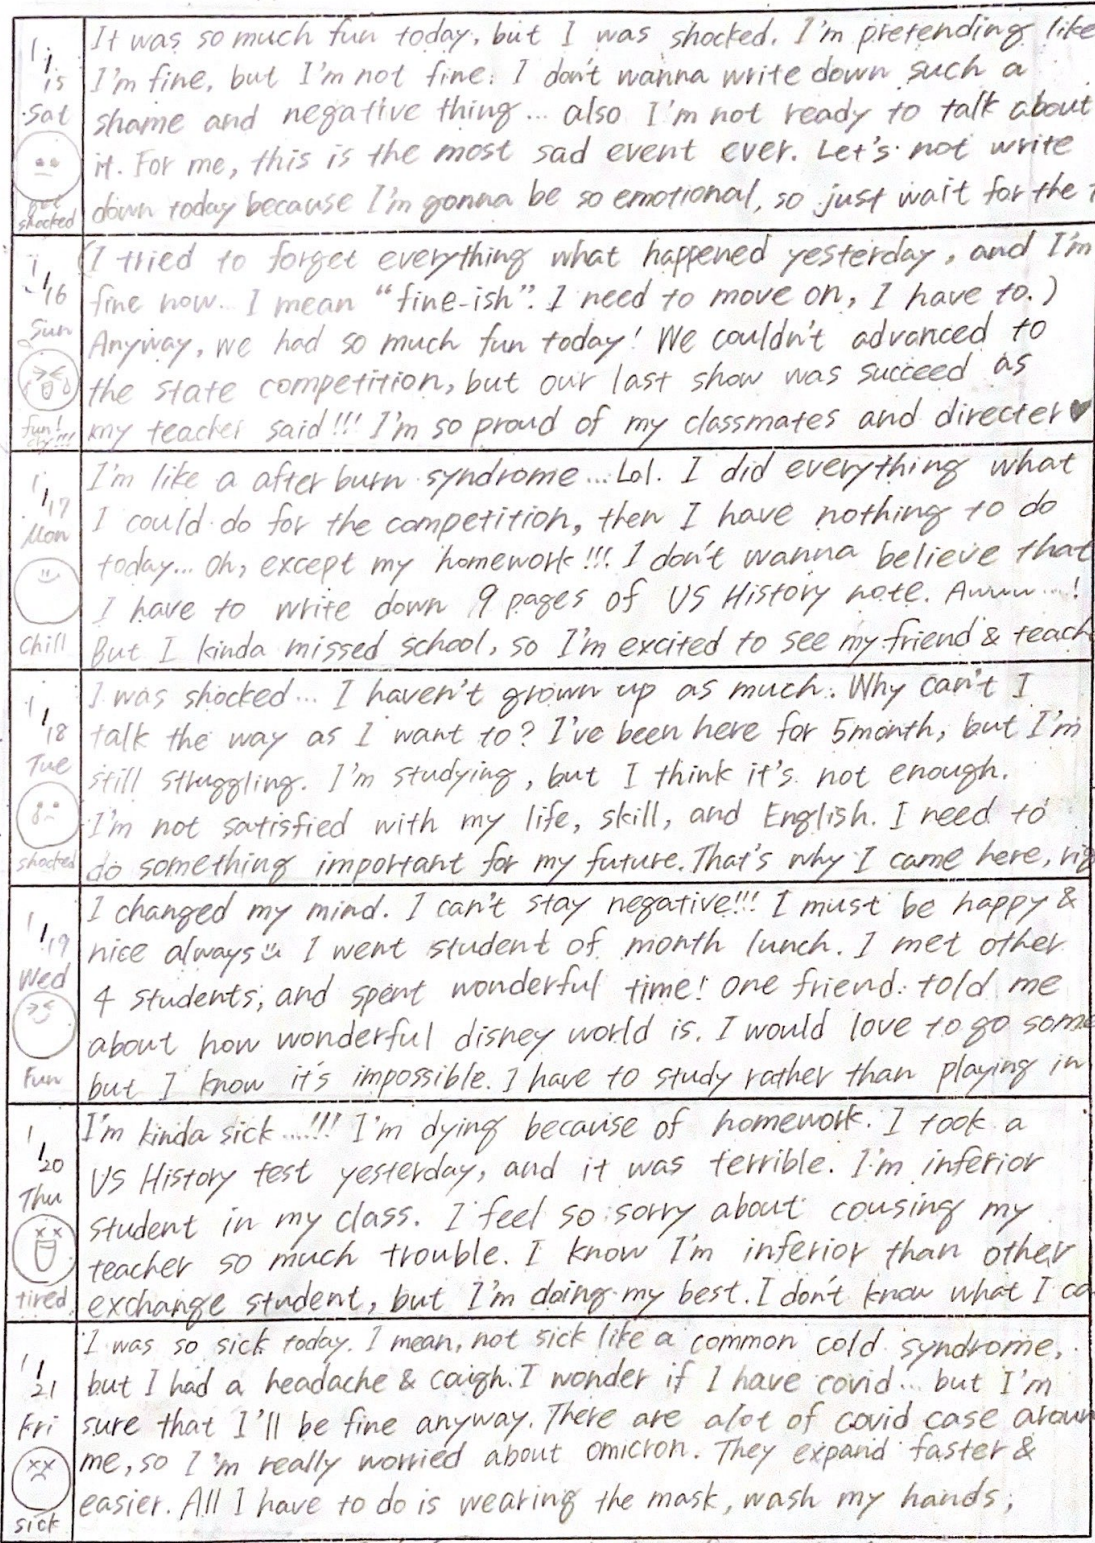 1/15
Sat
shocked
It was so much fun today, but I was shocked. I'm pretending like
I'm fine, but I'm not fine. I don't wanna write down such a
shame and negative thing... also I'm not ready to talk about
it. For me, this is the most sad event ever. Let's not write
down today because I'm gonna be so emotional, so just wait for the
1/16
Sun
fun!
cry!!!
(I tried to forget everything what happened yesterday, and I'm
fine now... I mean "fine-ish". I need to move on, I have to.)
Anyway, we had so much fun today! We couldn't advanced to
the state competition, but our last show was succeed as
my teacher said!!! I'm so proud of my classmates and directer♥
1/17
Mon
chill
I'm like a after burn syndrome... Lol. I did everything what
I could do for the competition, then I have nothing to do
today... Oh, except my homework!!! I don't wanna believe that
I have to write down 9 pages of US History note. Awww...!
But I kinda missed school, so I'm excited to see my friend & teach
1/18
Tue
shocked
I was shocked... I haven't grown up as much. Why can't I
talk the way as I want to? I've been here for 5month, but I'm
still struggling. I'm studying, but I think it's not enough.
I'm not satisfied with my life, skill, and English. I need to
do something important for my future. That's why I came here, rig
1/19
Wed
Fun
I changed my mind. I can't stay negative!!! I must be happy &
nice always I went student of month lunch. I met other
4 students, and spent wonderful time! One friend told me
about how wonderful disney world is. I would love to go some
but I know it's impossible. I have to study rather than playing in
1/20
Thu
tired
I'm kinda sick...!!! I'm dying because of homework. I took a
US History test yesterday, and it was terrible. I'm inferior
student in my class. I feel so sorry about cousing my
teacher so much trouble. I know I'm inferior than other
exchange student, but I'm doing my best. I don't know what I ca
1/21
Fri
sick
I was so sick today. I mean, not sick like a common cold syndrome,
but I had a headache & caugh. I wonder if I have covid... but I'm
sure that I'll be fine anyway. There are alot of covid case aroun
me, so I'm really worried about omicron. They expand faster &
easier. All I have to do is wearing the mask, wash my hands,